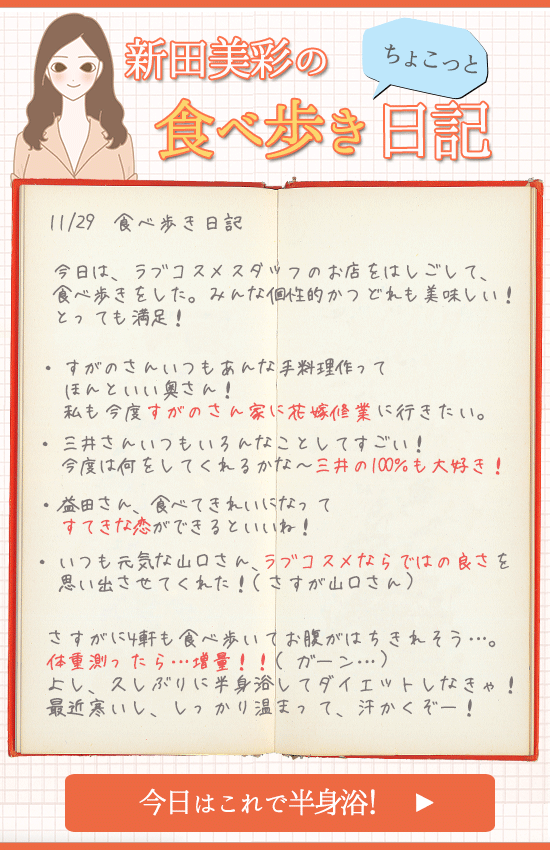 新田美彩の
ちょこっと
食べ歩き日記
11/29 食べ歩き日記
今日は、ラブコスメスタッフのお店をはしごして、
食べ歩きをした。みんな個性的かつどれも美味しい！
とっても満足！
・すがのさんいつもあんな手料理作って
ほんといい奥さん！
私も今度すがのさん家に花嫁修業に行きたい。
・三井さんいつもいろんなことしてすごい！
今度は何をしてくれるかな～三井の100%も大好き！
・益田さん、食べてきれいになって
すてきな恋ができるといいね！
・いつも元気な山口さん、ラブコスメならではの良さを
思い出させてくれた！(さすが山口さん)
さすがに4軒も食べ歩いてお腹がはちきれそう…。
体重測ったら…増量！！(ガーン…)
よし、久しぶりに半身浴してダイエットしなきゃ！
最近寒いし、しっかり温まって、汗かくぞー！
今日はこれで半身浴! ▶